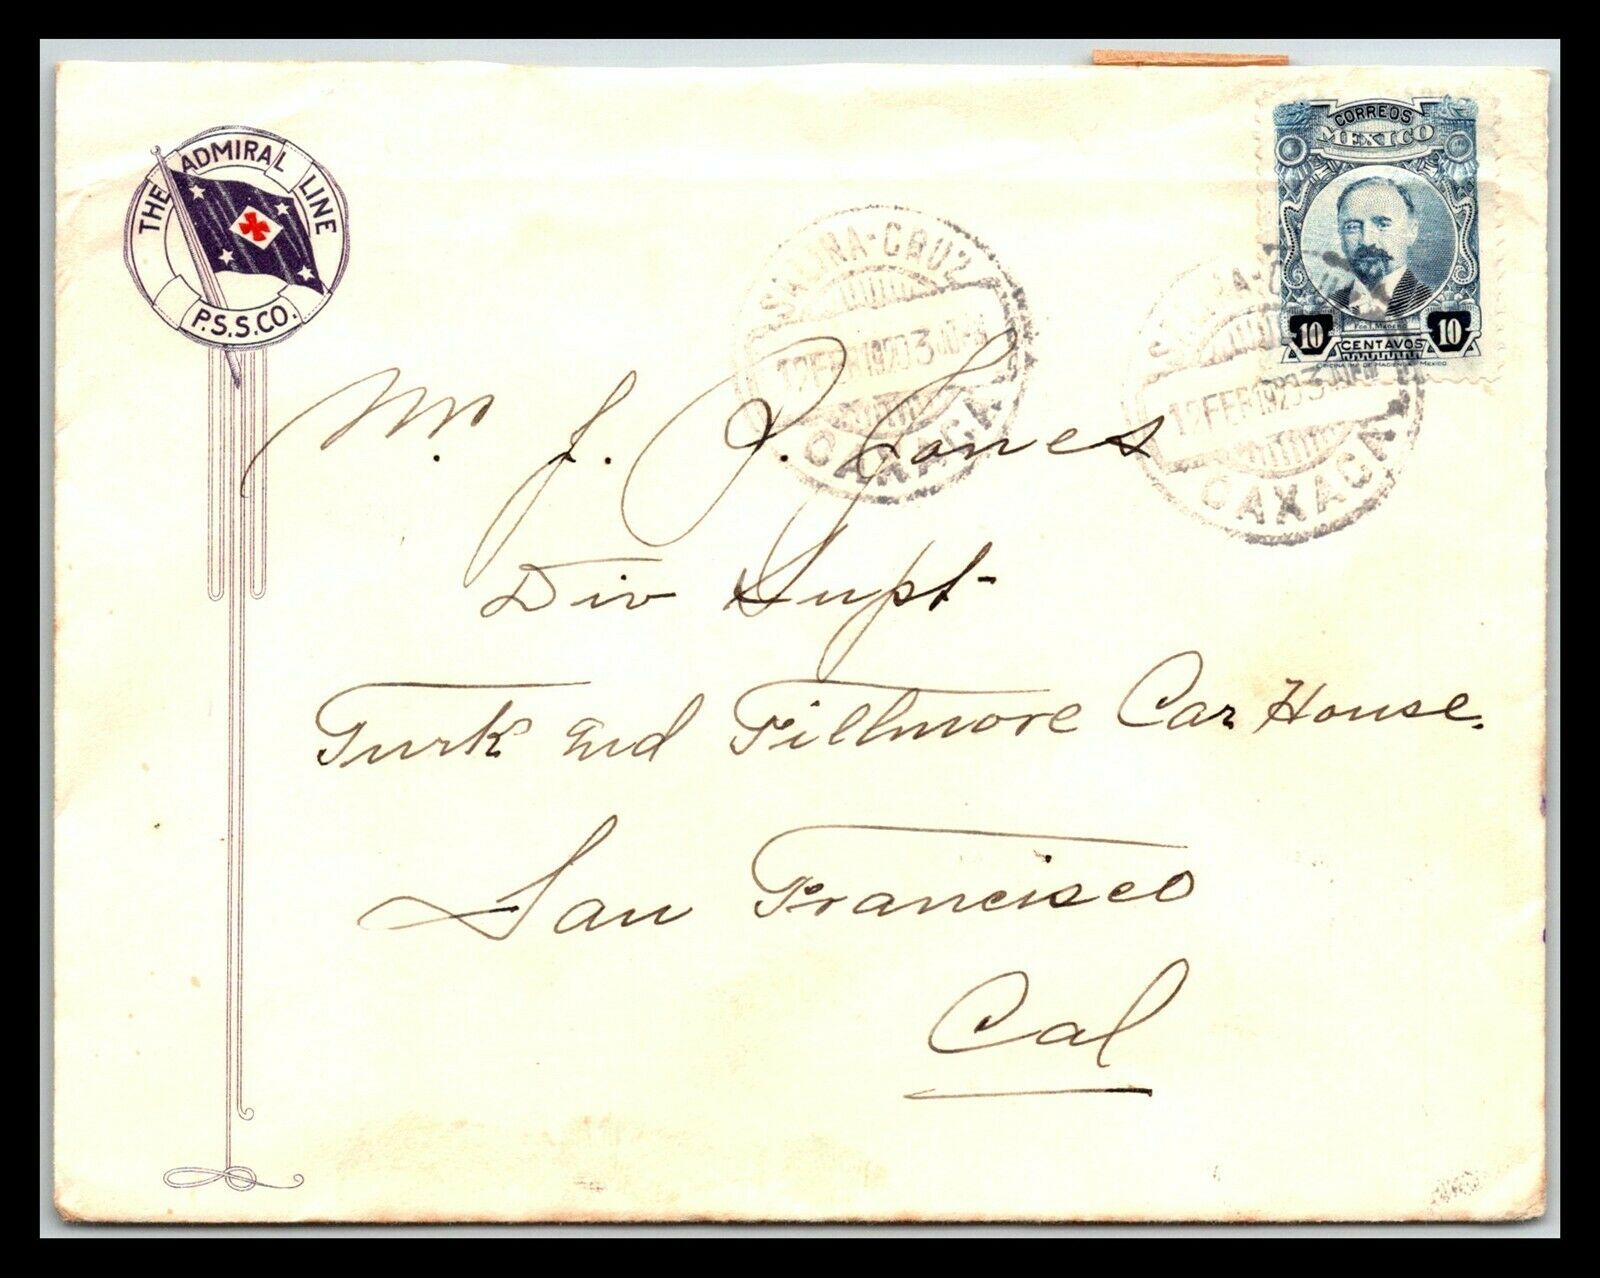 THE ADMIRAL LINE
P.S.S.CO.
CORREOS
MEXICO
Fco. I. Madero
10 CENTAVOS 10
OFICINA IMP. DE HACIENDA, MEXICO
SALINA-CRUZ
12 FEB 1920 3
OAXACA
12 FEB 1920 3
OAXACA
Mr. J. P. Jones
Div Supt
Turk and Fillmore Car House.
San Francisco
Cal